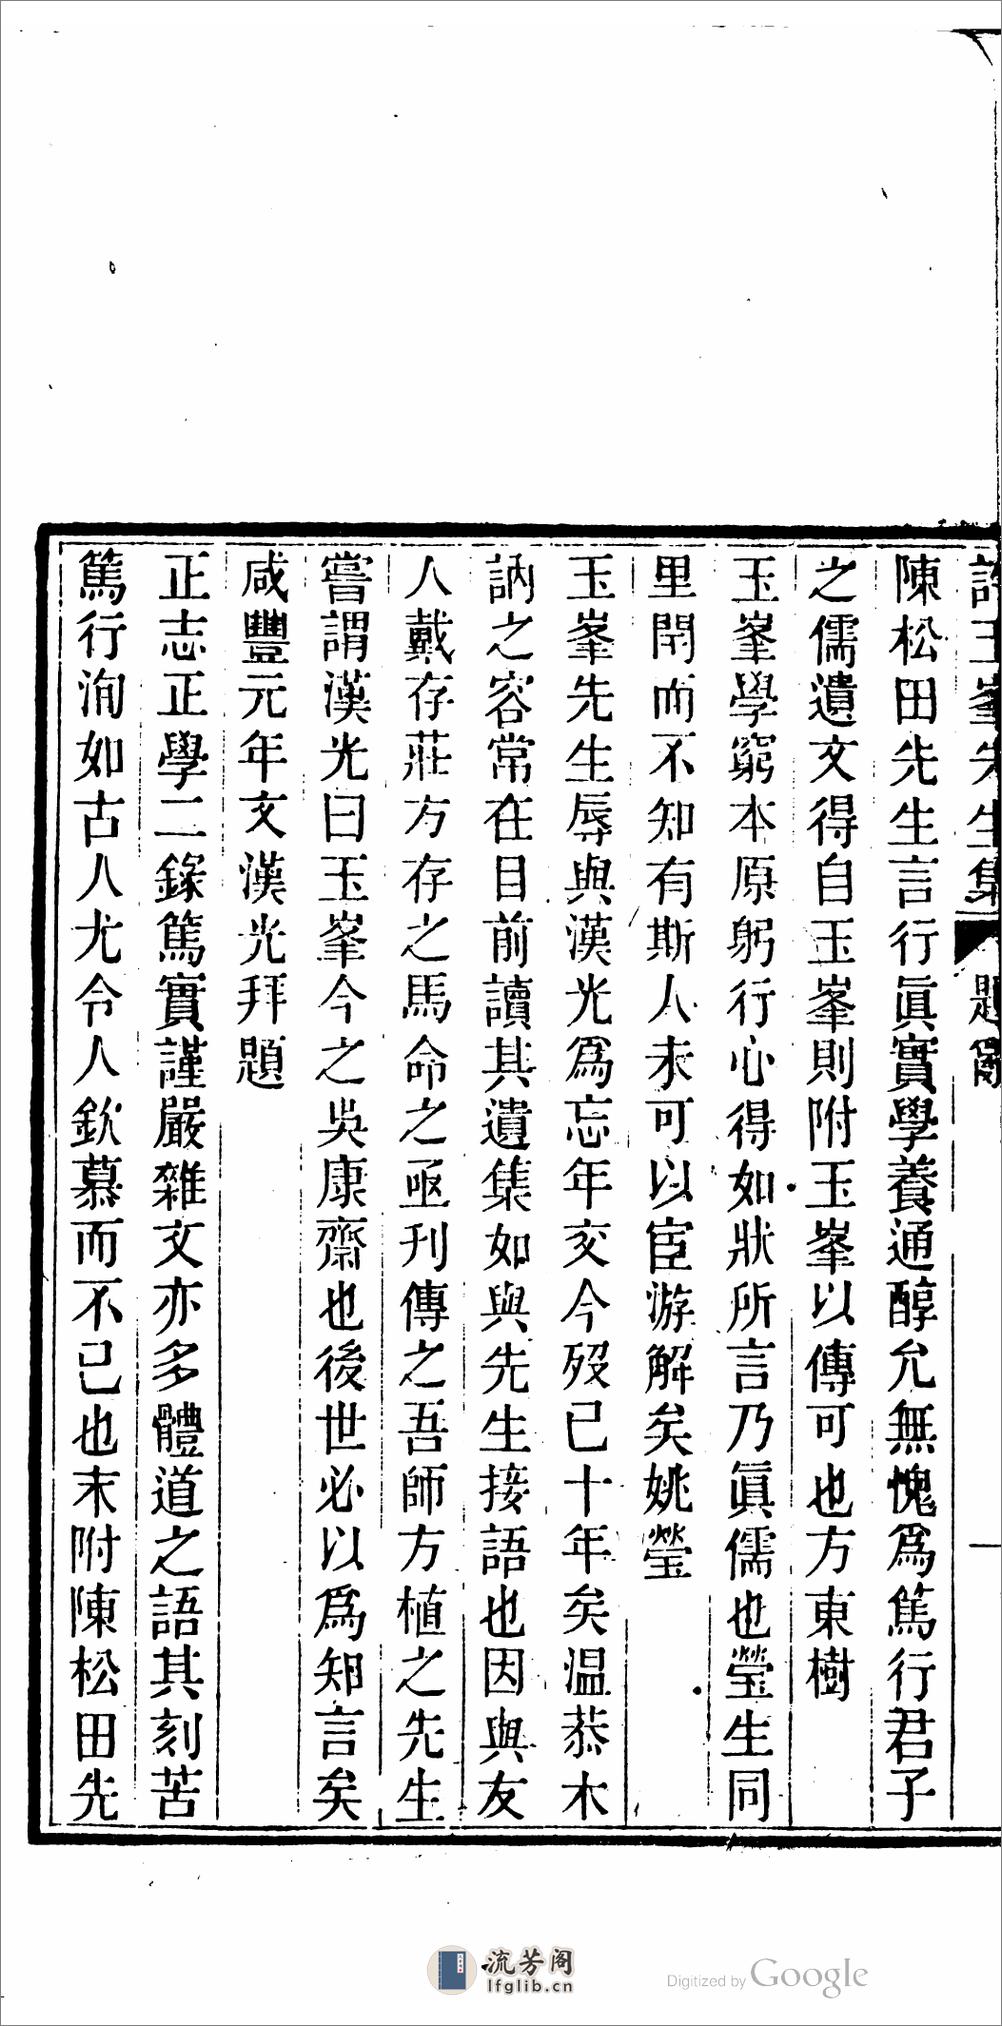 許玉峯先生集 題詞 一
陳松田先生言行眞實學養通醇允無愧爲篤行君子
之儒遺文得自玉峯則附玉峯以傳可也方東樹
玉峯學窮本原躬行心得如狀所言乃眞儒也瑩生同
里閈而不知有斯人未可以宦游解矣姚瑩
玉峯先生辱與漢光爲忘年交今歿已十年矣温恭木
訥之容常在目前讀其遺集如與先生接語也因與友
人戴存莊方存之馬命之亟刋傳之吾師方植之先生
嘗謂漢光曰玉峯今之吳康齋也後世必以爲知言矣
咸豐元年文漢光拜題
正志正學二錄篤實謹嚴雜文亦多體道之語其刻苦
篤行洵如古人尤令人欽慕而不已也末附陳松田先
流芳阁
lfglib.cn
Digitized by Google